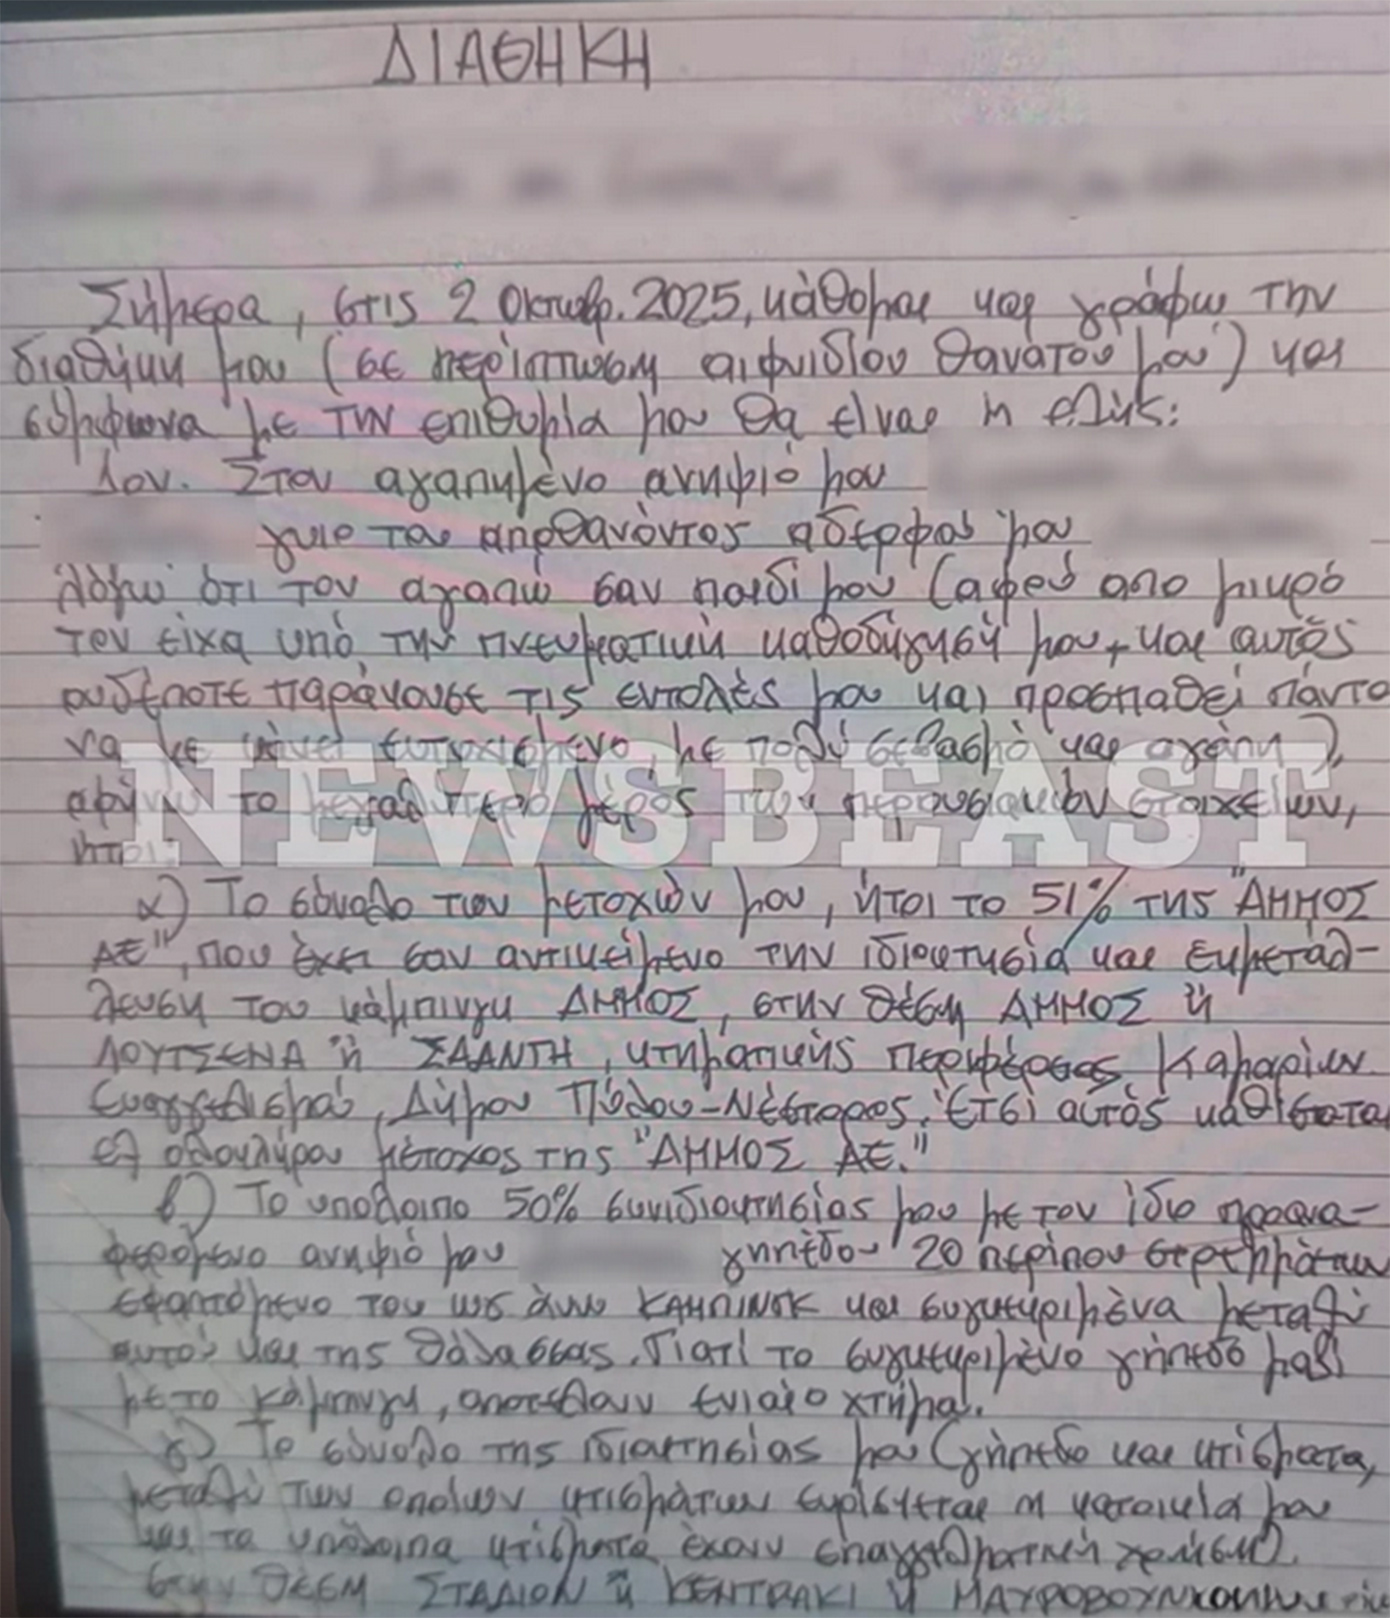 ΔΙΑΘΗΚΗ
Σήμερα, στις 2 Οκτωβρ. 2025, κάθομαι και γράφω την
διαθήκη μου (σε περίπτωση αιφνιδίου θανάτου μου) και
σύμφωνα με την επιθυμία μου θα είναι η εξής:
1ον. Στον αγαπημένο ανηψιό μου
γυιο του αποθανόντος αδερφού μου
λόγω ότι τον αγαπώ σαν παιδί μου (αφού απο μικρό
τον είχα υπό την πνευματική καθοδήγησή μου + και αυτός
ουδέποτε παράκουσε τις εντολές μου και προσπαθεί πάντα
να με κάνει ευτυχισμένο, με πολύ σεβασμό και αγάπη),
αφήνω το μεγαλύτερο μέρος των περιουσιακών στοιχείων,
ήτοι:
NEWSBEAST
α) Το σύνολο των μετοχών μου, ήτοι το 51% της "ΑΜΜΟΣ
ΑΕ", που έχει σαν αντικείμενο την ιδιοκτησία και εκμετάλ-
λευση του κάμπινγκ ΑΜΜΟΣ, στην θέση ΑΜΜΟΣ ή
ΛΟΥΤΣΕΝΑ ή ΣΑΑΝΤΗ, κτηματικής περιφέρειας Καμαρίων
Ευαγγελισμού, Δήμου Πύλου-Νέστορος. Έτσι αυτός καθίσταται
εξ ολοκλήρου μέτοχος της "ΑΜΜΟΣ ΑΕ."
β) Το υπόλοιπο 50% συνιδιοκτησίας μου με τον ίδιο προανα-
φερόμενο ανηψιό μου γηπέδου 20 περίπου στρεμμάτων
εφαπτόμενο του ως άνω ΚΑΜΠΙΝΓΚ και συγκεκριμένα μεταξύ
αυτού και της θάλασσας. Γιατί το συγκεκριμένο γήπεδο μαζί
με το κάμπινγκ, αποτελούν ενιαίο κτήμα.
γ) Το σύνολο της ιδιοκτησίας μου (γήπεδο και κτίσματα,
μεταξύ των οποίων κτισμάτων ευρίσκεται η κατοικία μου
και τα υπόλοιπα κτίσματα έχουν επαγγελματική χρήση)
στην θέση ΣΤΑΔΙΟΝ ή ΚΕΝΤΡΑΚΙ ή